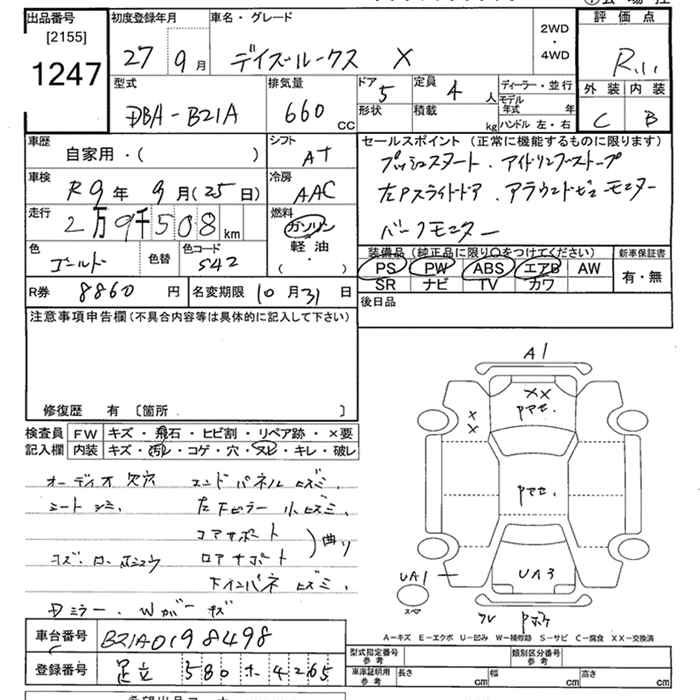 出品番号
[2155]
1247
初度登録年月
27 9月
車名・グレード
デイズルークス X
2WD
・
4WD
評価点
R,1,1
外装 内装
C B
型式
DBA-B21A
排気量
660 CC
ドア 5
形状
定員 4 人
積載 kg
ディーラー・並行
モデル年式 年
ハンドル 左・右
車歴
自家用・( )
シフト
AT
車検
R9年 9月(25日)
冷房
AAC
走行
2万9千508km
燃料
ガソリン
軽油
・
( )
色
ゴールド
色替
色コード
S42
セールスポイント(正常に機能するものに限ります)
プッシュスタート、アイドリングストップ
左Pスライドドア、アラウンドビューモニター
バックモニター
装備品(純正品に限り○をつけてください)
PS PW ABS エアB AW
SR ナビ TV カワ
新車保証書
有・無
R券 8860円
名変期限 10月31日
後日品
注意事項申告欄(不具合内容等は具体的に記入して下さい)
修復歴 有 〔箇所 〕
検査員記入欄
FW キズ・飛石・ヒビ割・リペア跡・×要
内装 キズ・汚レ・コゲ・穴・ヌレ・キレ・破レ
オーディオ欠穴 エンドパネルヒズミ、
シートシミ、左下ピラー小ヒズミ、
コアサポート
ロアサポート
曲り
下インパネヒズミ、
Dミラー、Wガーキズ
A1
XX
X
X
アマセ.
アマセ.
UA3
UA1
スペア
A−キズ E−エクボ U−凹み W−補修跡 S−サビ C−腐食 XX−交換済
車台番号 B21A0198498
登録番号 足立 580 ホ 4265
型式指定番号
参考
類別区分番号
参考
車庫証明用
参考
長さ cm
幅 cm
高さ cm